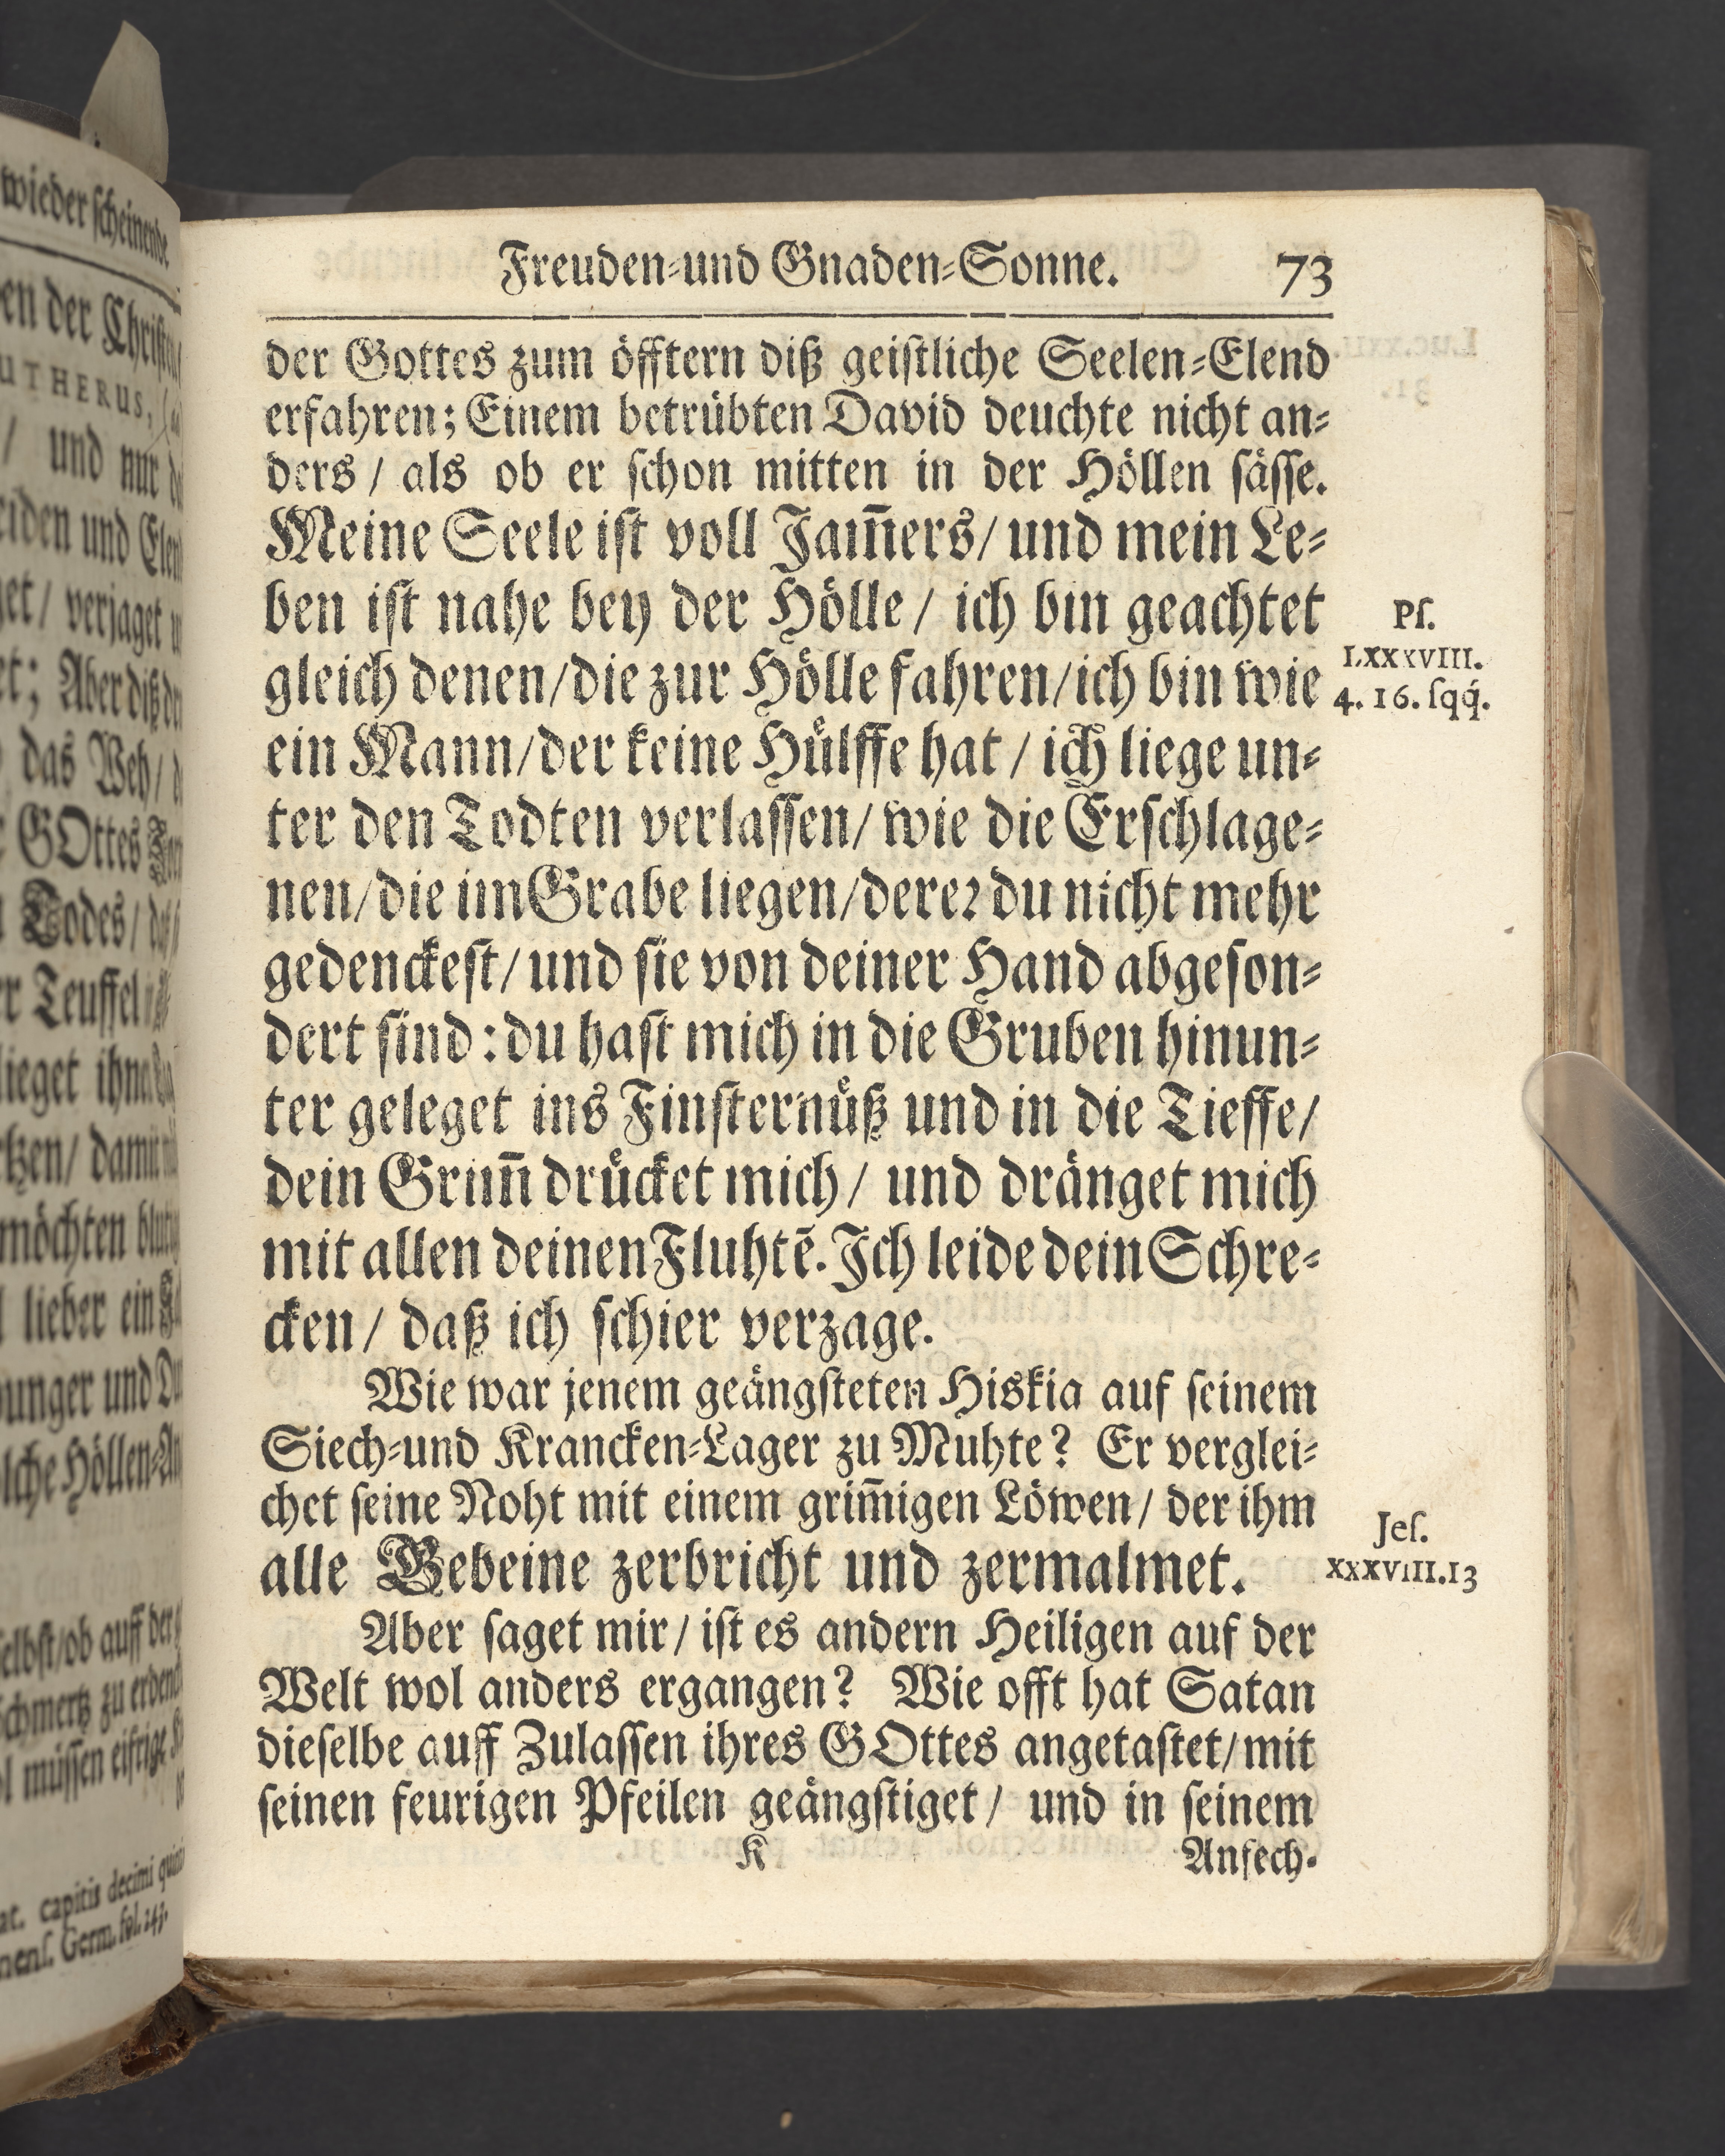 wieder scheinende
en der Christen
UTHERUS,
/ und nur
eiden und Elen
get / verjaget
et; Aber diß
das Weh /
GOttes
Todes /
er Teuffel
lieget ihm
tzen / damit
möchten
lieber ein
unger und
lche Höllen-
selbst / ob auff der
Schmertz zu
müssen eifrige
at. capitis decimi
nens. Germ. fol. 243.
Freuden-und Gnaden-Sonne. 73
der Gottes zum öfftern diß geistliche Seelen-Elend
erfahren; Einem betrübten David deuchte nicht an-
ders / als ob er schon mitten in der Höllen sässe.
Meine Seele ist voll Jam̄ers / und mein Le-
ben ist nahe bey der Hölle / ich bin geachtet
gleich denen / die zur Hölle fahren / ich bin wie
ein Mann / der keine Hülffe hat / ich liege un-
ter den Todten verlassen / wie die Erschlage-
nen / die im Grabe liegen / derer du nicht mehr
gedenckest / und sie von deiner Hand abgeson-
dert sind : du hast mich in die Gruben hinun-
ter geleget ins Finsternüß und in die Tieffe /
dein Grim̄ drücket mich / und dränget mich
mit allen deinen Fluhtē. Ich leide dein Schre-
cken / daß ich schier verzage.
Ps.
LXXXVIII.
4. 16. sqq́.
Wie war jenem geängsteten Hiskia auf seinem
Siech-und Krancken-Lager zu Muhte? Er verglei-
chet seine Noht mit einem grim̄igen Löwen / der ihm
alle Gebeine zerbricht und zermalmet.
Jes.
XXXVIII.13
Aber saget mir / ist es andern Heiligen auf der
Welt wol anders ergangen? Wie offt hat Satan
dieselbe auff Zulassen ihres GOttes angetastet / mit
seinen feurigen Pfeilen geängstiget / und in seinem
K Anfech-